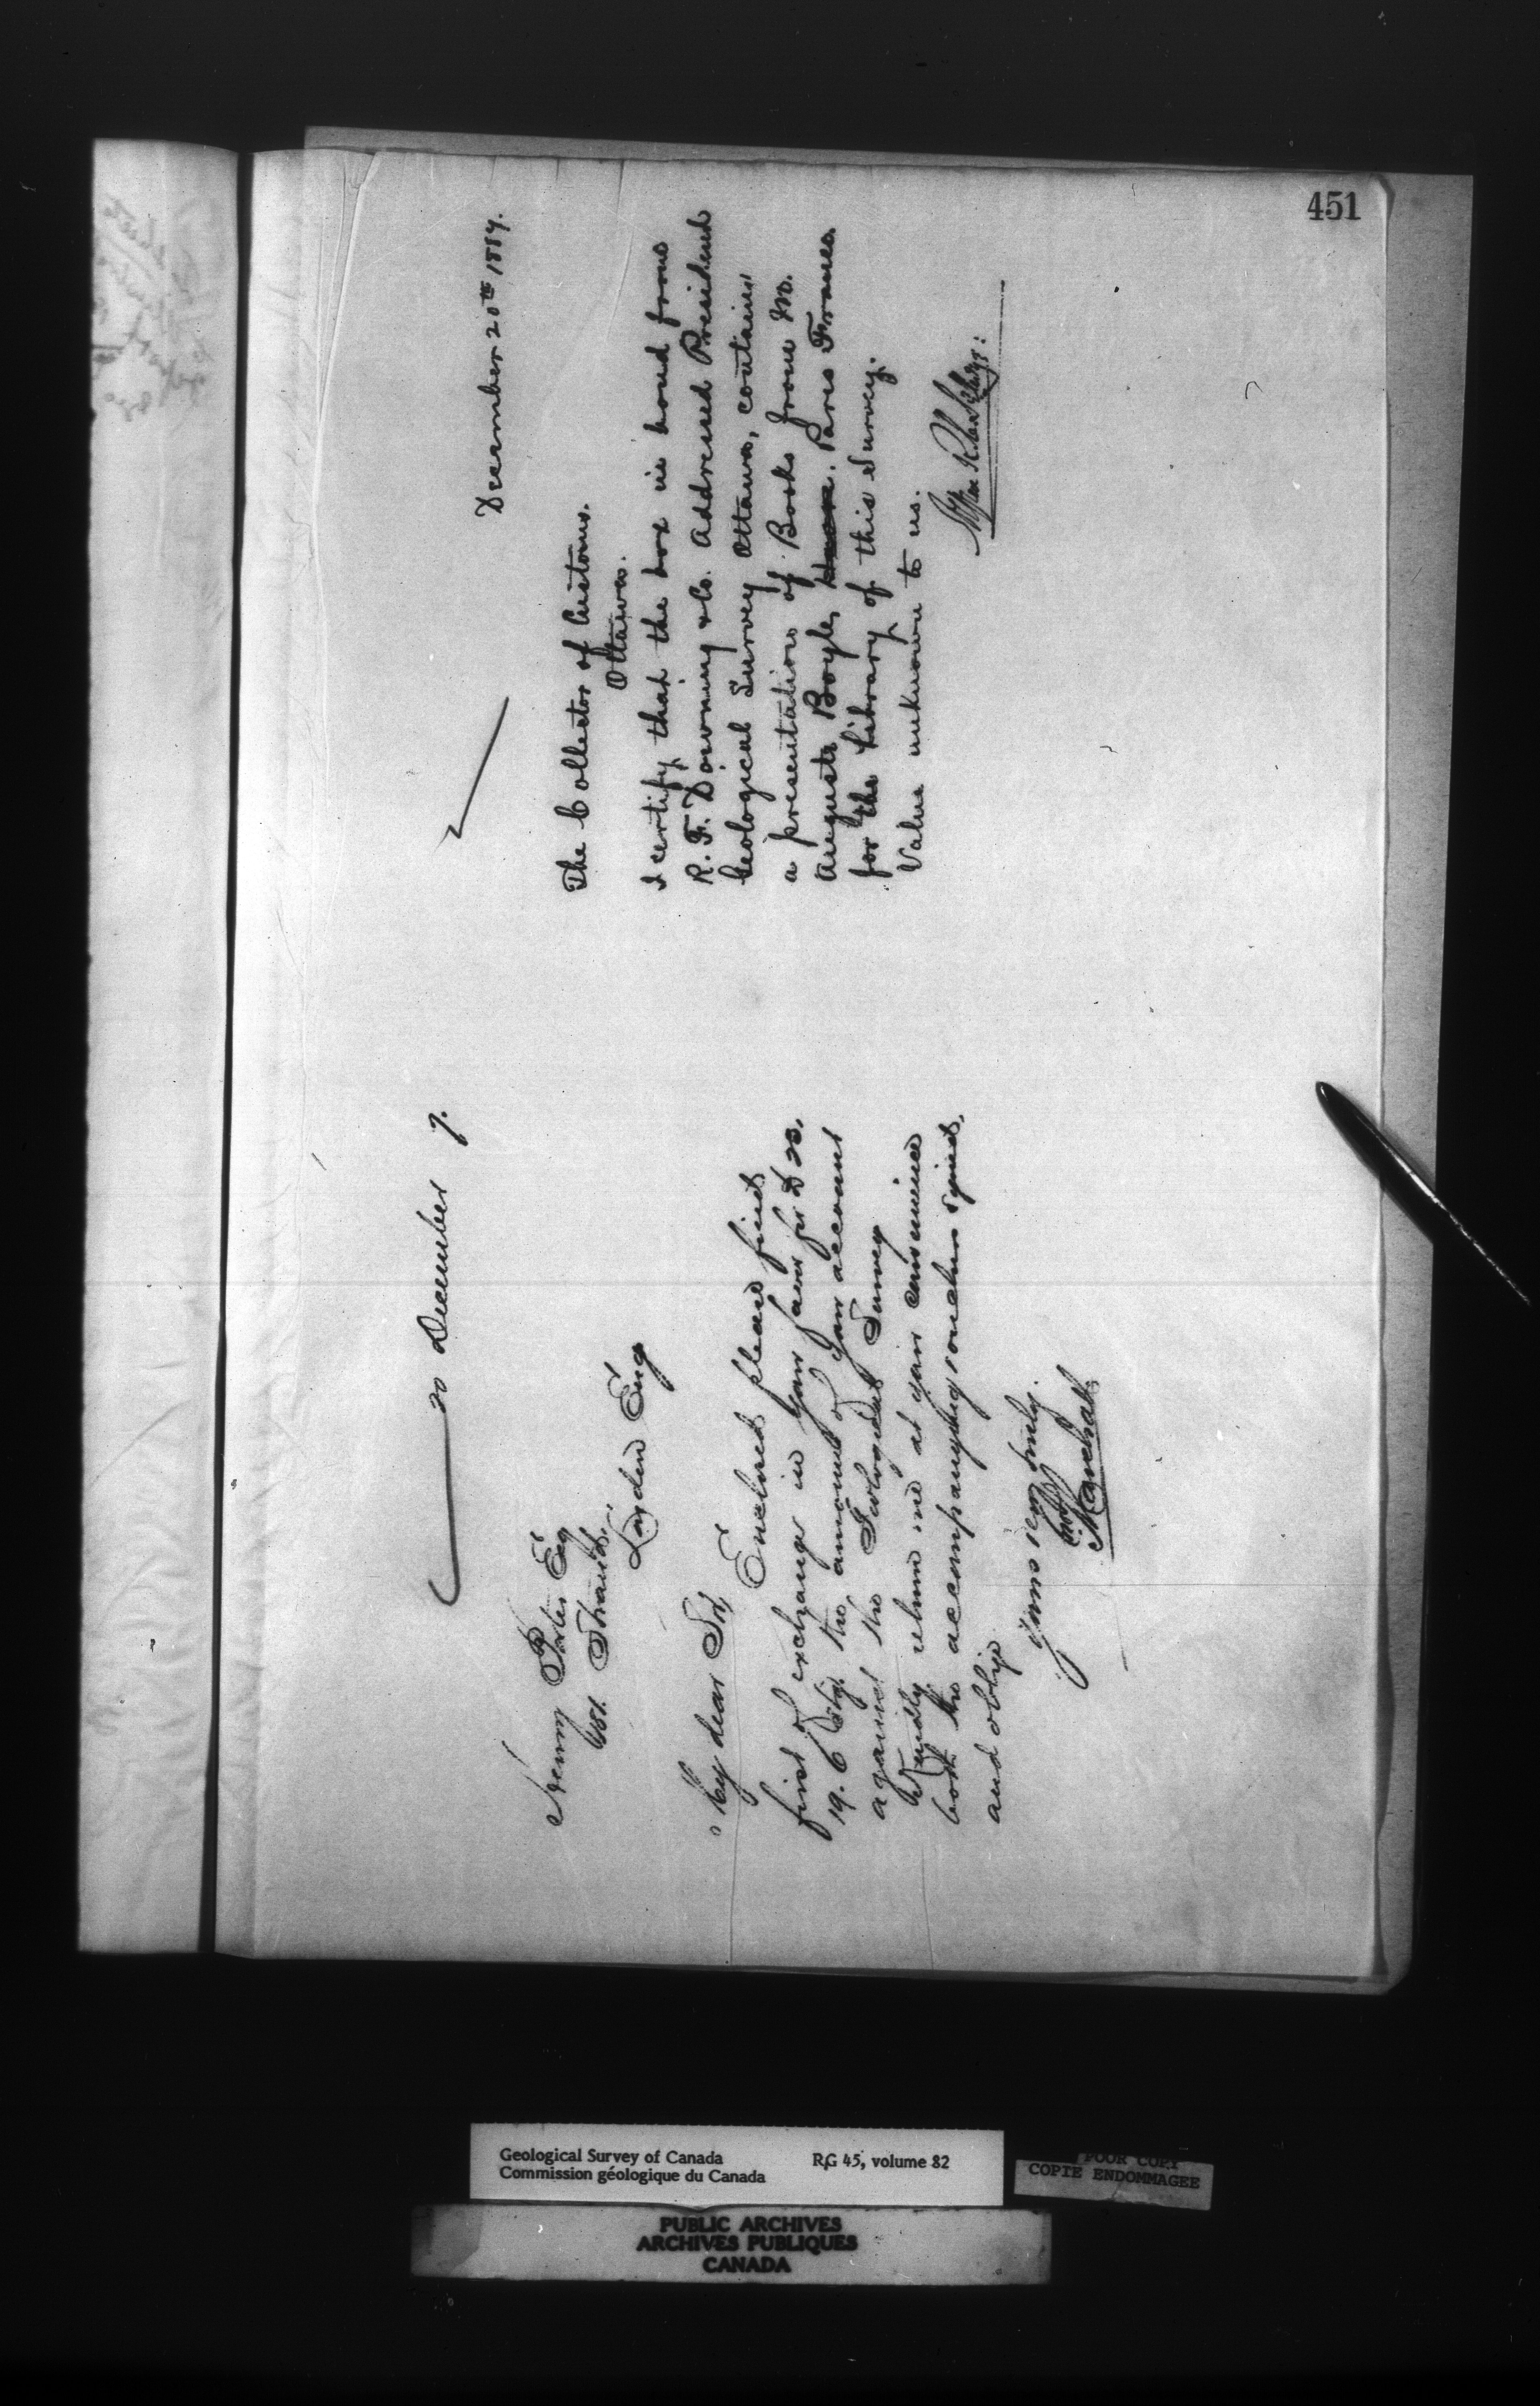 451
20 December 7.
Henry Porter Esq
181. Strand,
London Eng
My dear Sir,
Enclosed please find
first of exchange in your favor for £ 23.
19. 6 Stg. the amount of your account
against the Geological Survey
Kindly return me at your convenience
both the accompanying vouchers signed,
and oblige
Yours very truly.
Marshall
December 20th 1887.
The Collector of Customs.
Ottawa.
I certify that the box in bond from
R. F. Downing & Co. Addressed President
Geological Survey Ottawa, contains
a presentation of Books from M.
Auguste Boyle, Paris France.
for the Library of this Survey.
Value unknown to us.
Geological Survey of Canada RG 45, volume 82
Commission géologique du Canada
POOR COPY
COPIE ENDOMMAGEE
PUBLIC ARCHIVES
ARCHIVES PUBLIQUES
CANADA